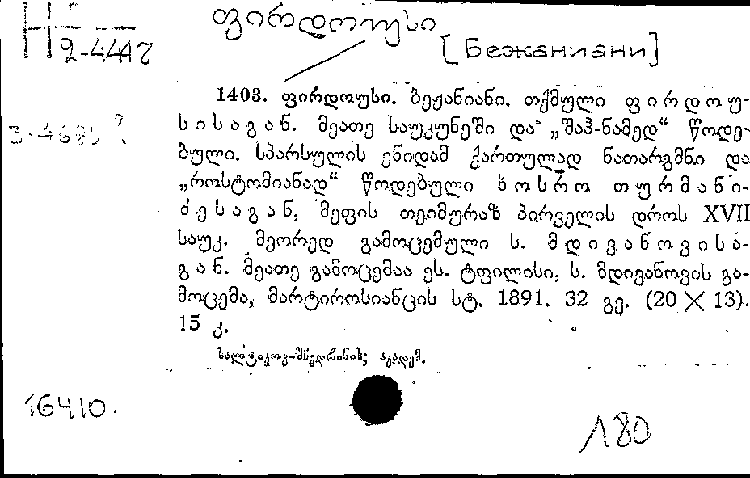 ფირდოუსი
Н
2-4447
[Бежаниани]
1403. ფირდოუსი. ბეჟანიანი. თქმული ფირდოუ-
სისაგან. მეათე საუკუნეში და „შაჰ-ნამედ“ წოდე-
ბული. სპარსულის ენიდამ ქართულად ნათარგმნი და
„როსტომიანად“ წოდებული ხოსრო თურმანი-
ძესაგან, მეფის თეიმურაზ პირველის დროს XVII
საუკ. მეორედ გამოცემული ს. მდივანოვისა-
გან. მეათე გამოცემაა ეს. ტფილისი, ს. მდივანოვის გა-
მოცემა, მარტიროსიანცის სტ. 1891. 32 გვ. (20 X 13).
15 კ.
სალტიკოვ-შჩედრინის; აკადემ.
16410.
180